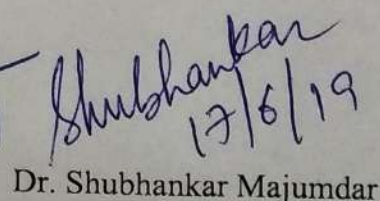 Shubhankar
17/6/19
Dr. Shubhankar Majumdar